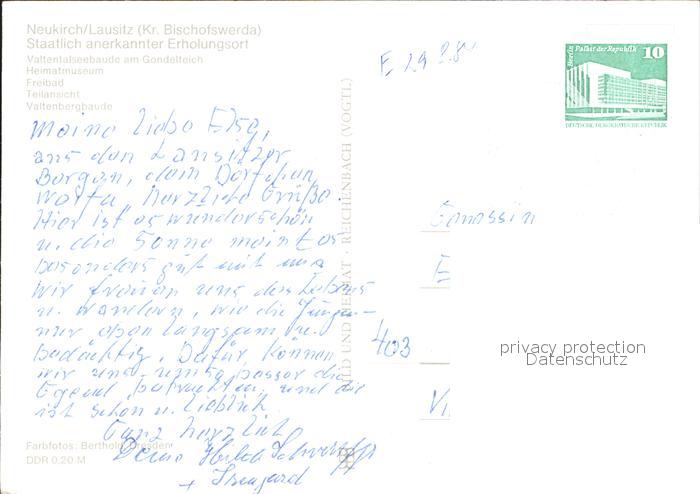 Neukirch/Lausitz (Kr. Bischofswerda)
Staatlich anerkannter Erholungsort
Valtentalseebaude am Gondelteich
Heimatmuseum
Freibad
Teilansicht
Valtenbergbaude
Meine liebe Elsa,
aus den Lausitzer
Bergen, dem Dörfchen
Wartha, herzliche Grüße.
Hier ist es wunderschön
u. die Sonne meint es
besonders gut mit uns
wir freuen uns des Lebens
u. wandern, wie die Jungen
nur eben langsam u.
bedächtig. Dafür können
wir uns umso besser die
Gegend betrachten, und die
ist schön u. lieblich.
Ganz herzlich
Deine Hilde
+ Irmgard
Farbfotos: Berthold, Dresden
DDR 0,20 M
BILD UND HEIMAT · REICHENBACH (VOGTL)
E 29 28
Berlin Palast der Republik 10
DEUTSCHE DEMOKRATISCHE REPUBLIK
Genossin
E
403
privacy protection
Datenschutz
Vi